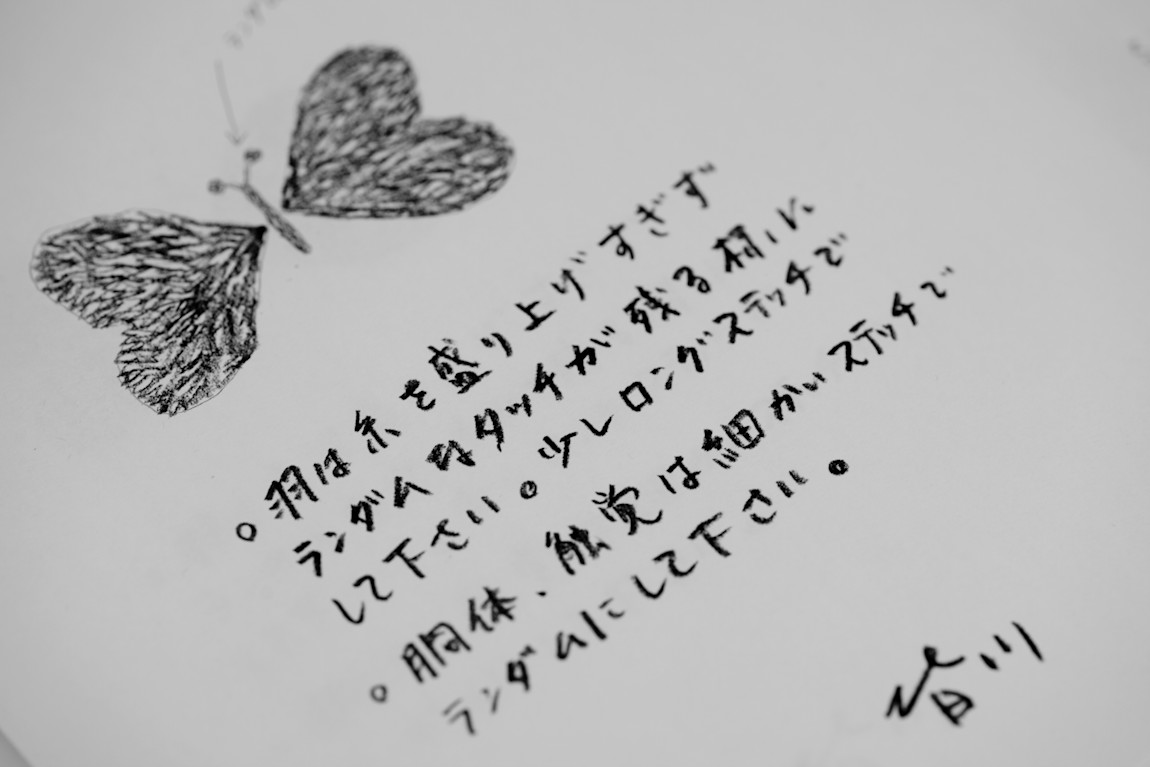 ○羽は糸を盛り上げすぎず
ランダムなタッチが残る様に
して下さい。少しロングステッチで
○胴体、触覚は細かいステッチで
ランダムにして下さい。
皆川